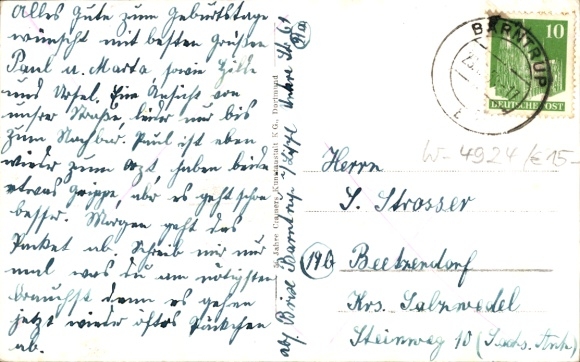 Alles Gute zum Geburtstage
wünscht mit besten Grüßen
Paul u. Marta, sowie Hilde
und Ursel. Eine Ansicht von
unsrer Straße, leider nur bis
zum Nachbar. Paul ist eben
wieder zum Arzt, haben beide
etwas Grippe, abr es geht schon
besser. Morgen geht das
Paket ab. Schreib mir nur
mal was du am nötigsten
brauchst denn es gehen
jetzt wieder öfters Päckchen
ab.
50 Jahre Cramers Kunstanstalt K.G., Dortmund
abs. Böse Barntrup i/Lippe Untere Str. 61
BARNTRUP
10
DEUTSCHE POST
W-4924/€15-
Herrn
S. Strosser
(19b) Beetzendorf
Krs. Salzwedel
Steinweg 10 (Sachs. Anh.)